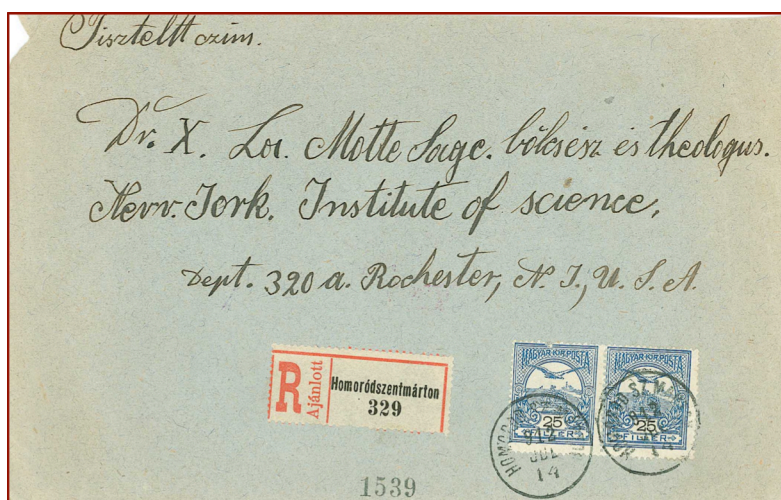 Tisztelt czim.
Dr. X. La. Motte Sage. bölcsész és theologus.
New. York. Institute of science.
Dept. 320 a. Rochester, N. J., U. S. A
R
Ajánlott
Homoródszentmárton
329
MAGYAR KIR POSTA
MAGYAR KIR POSTA
25
25
FILLÉR
FILLÉR
912
JUL
14
912
14
1539